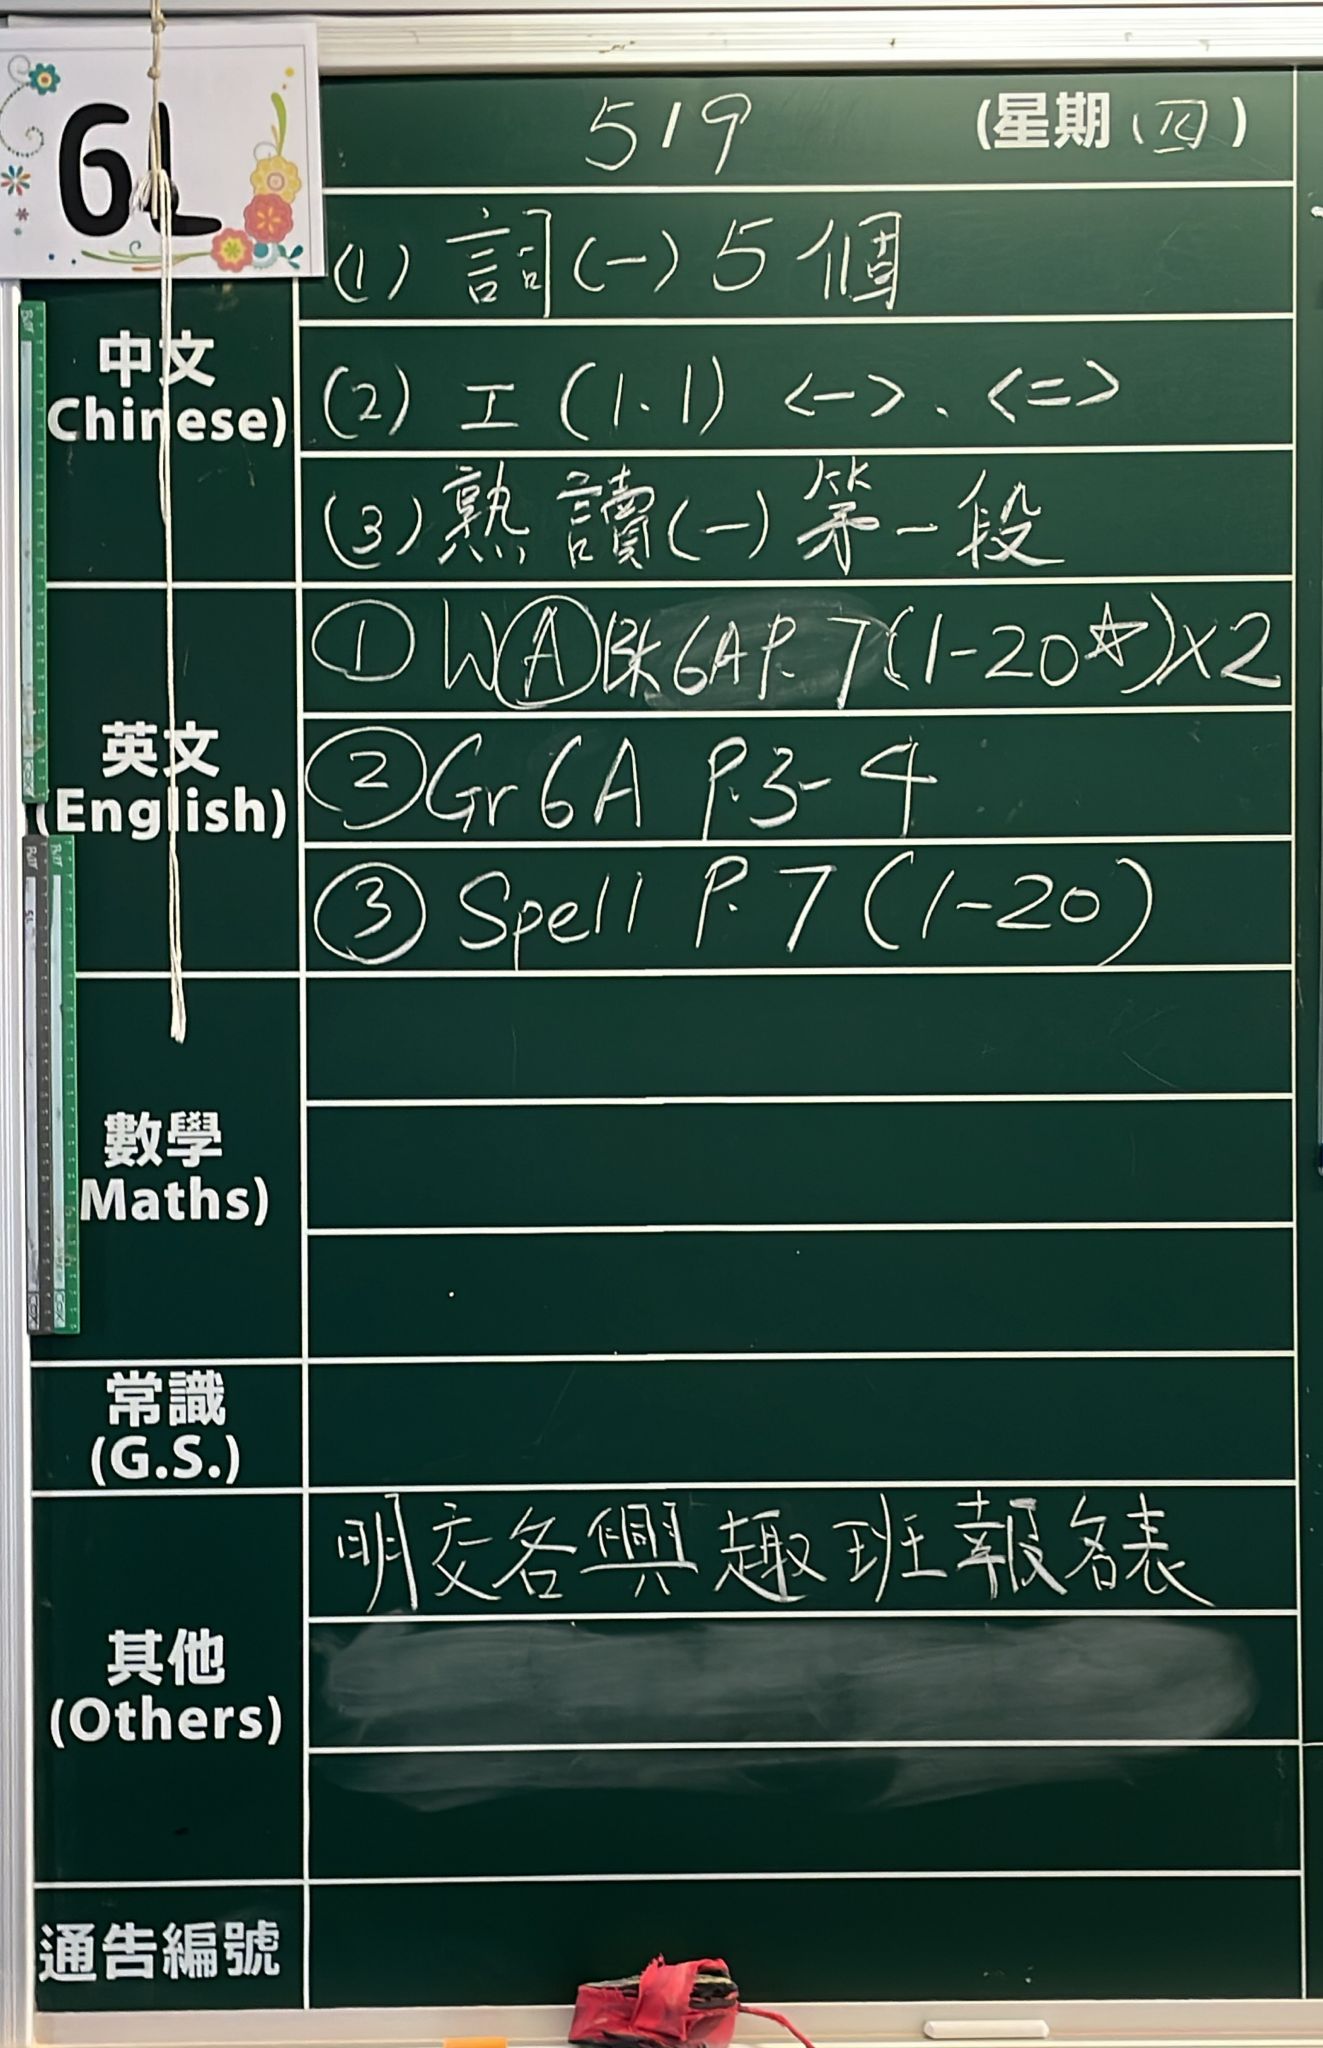 6L
5/9 (星期四)
(1) 詞(一) 5 個
中文
(Chinese)
(2) 工 (1.1) <一>、<二>
(3) 熟讀(一) 第一段
① WⒶBk 6A P. 7 (1-20☆)×2
英文
(English)
② Gr 6A P.3-4
③ Spell P. 7 (1-20)
數學
Maths)
常識
(G.S.)
明交各興趣班報名表
其他
(Others)
通告編號